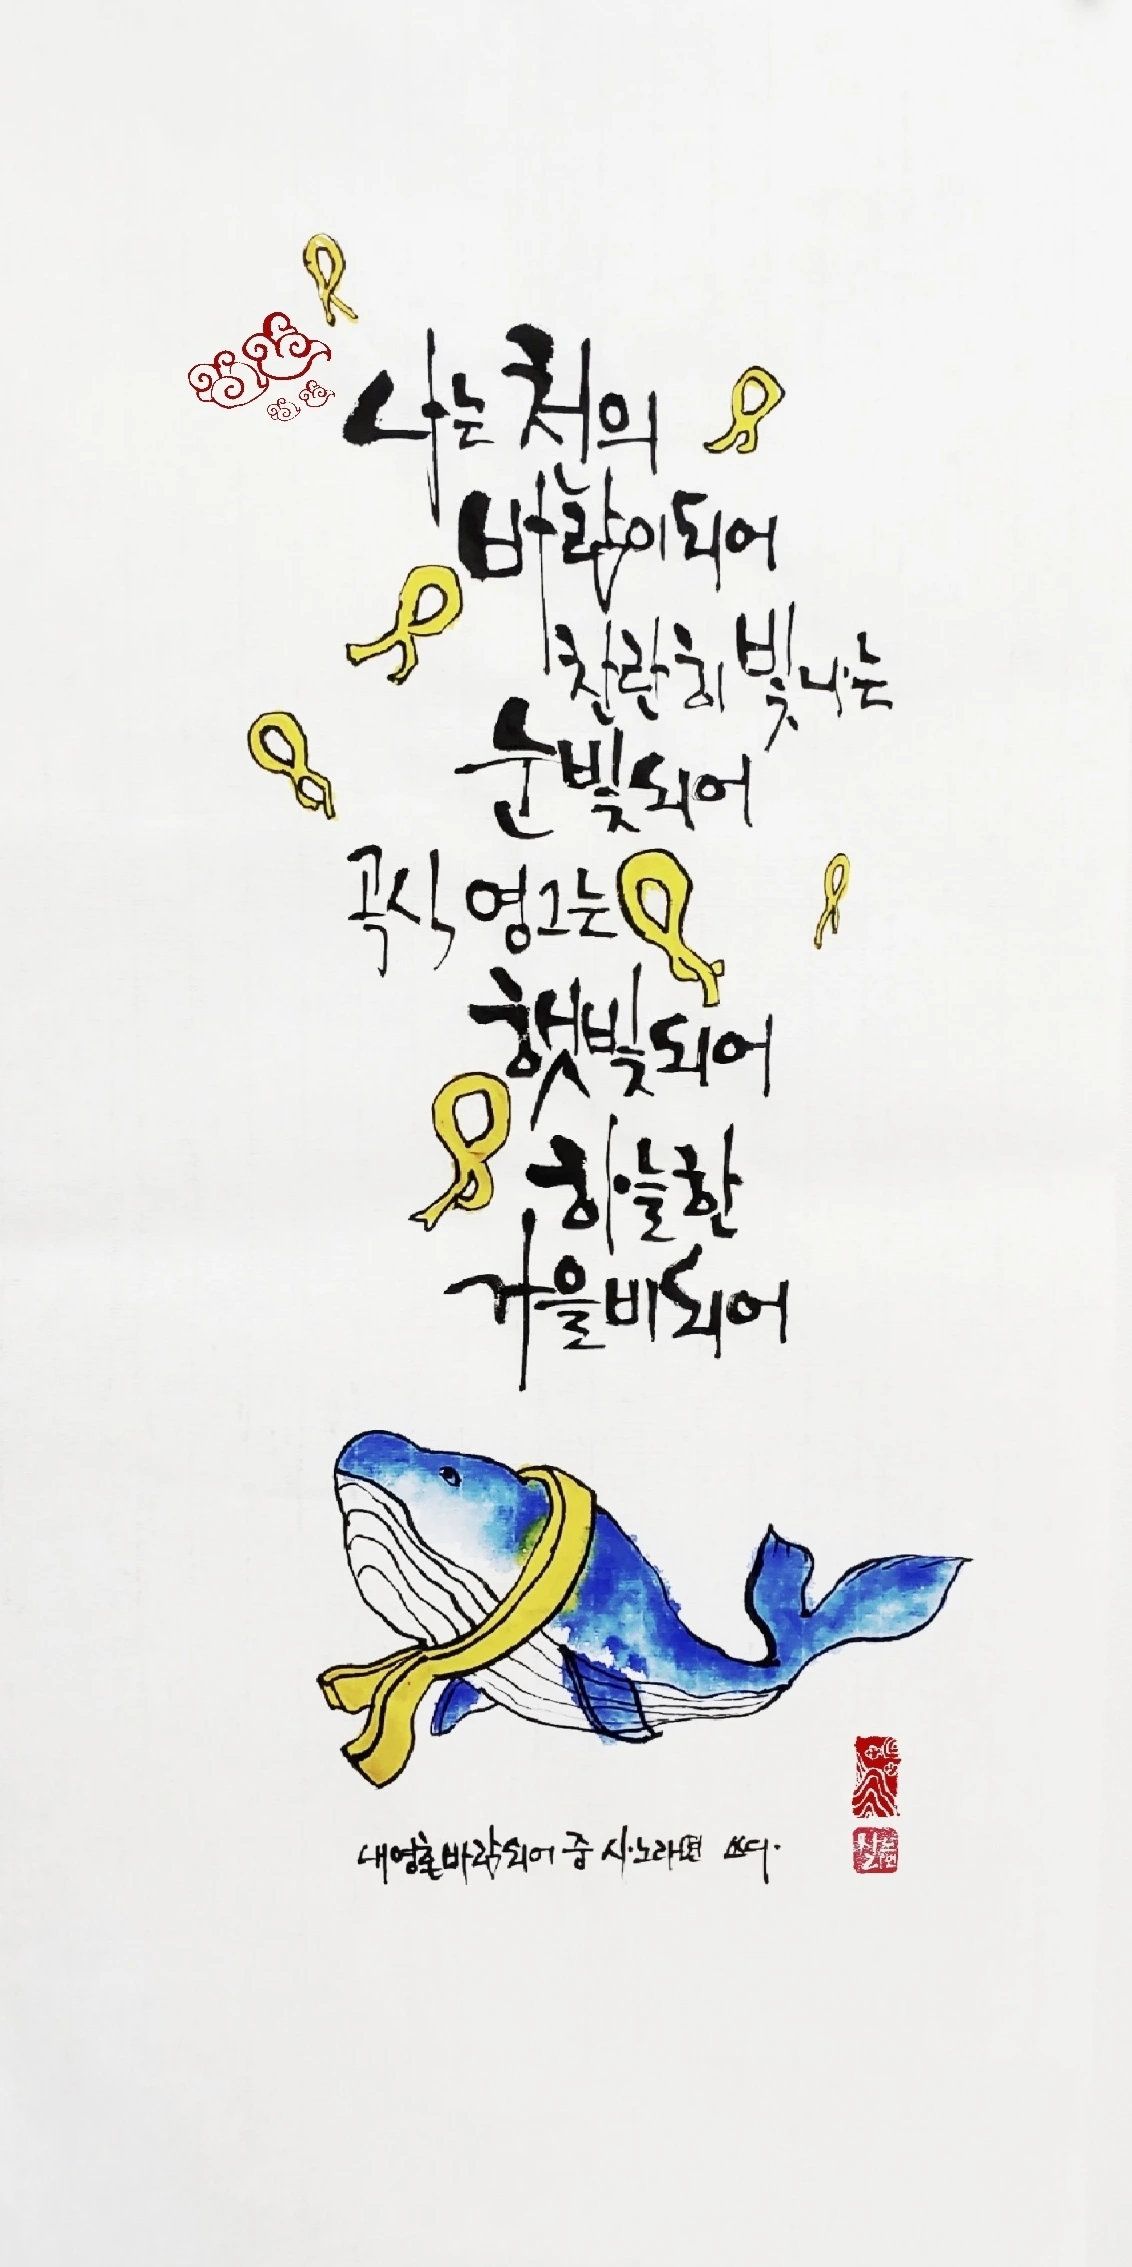 나는 천의
바람이 되어
찬란히 빛나는
눈빛되어
곡식 영그는
햇빛되어
하늘한
가을비되어
내영혼바람되어 중 시·노라면 쓰다·